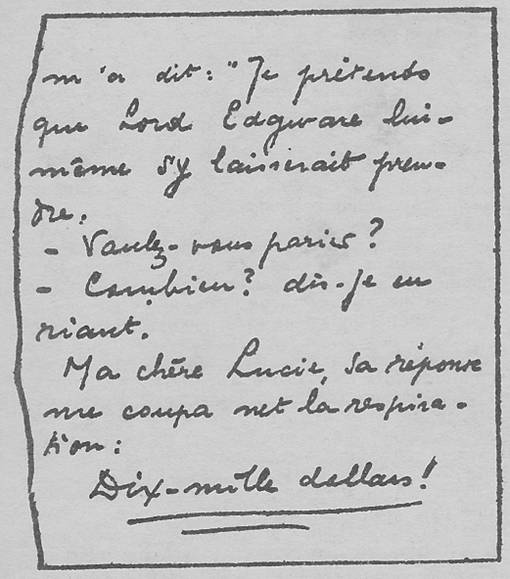 m'a dit : "Je prétends
que Lord Edgware lui-
même s'y laisserait pren-
dre.
- Voulez-vous parier ?
- Combien ? dis-je en
riant.
Ma chère Lucie, sa réponse
me coupa net la respira-
tion :
Dix-mille dollars !